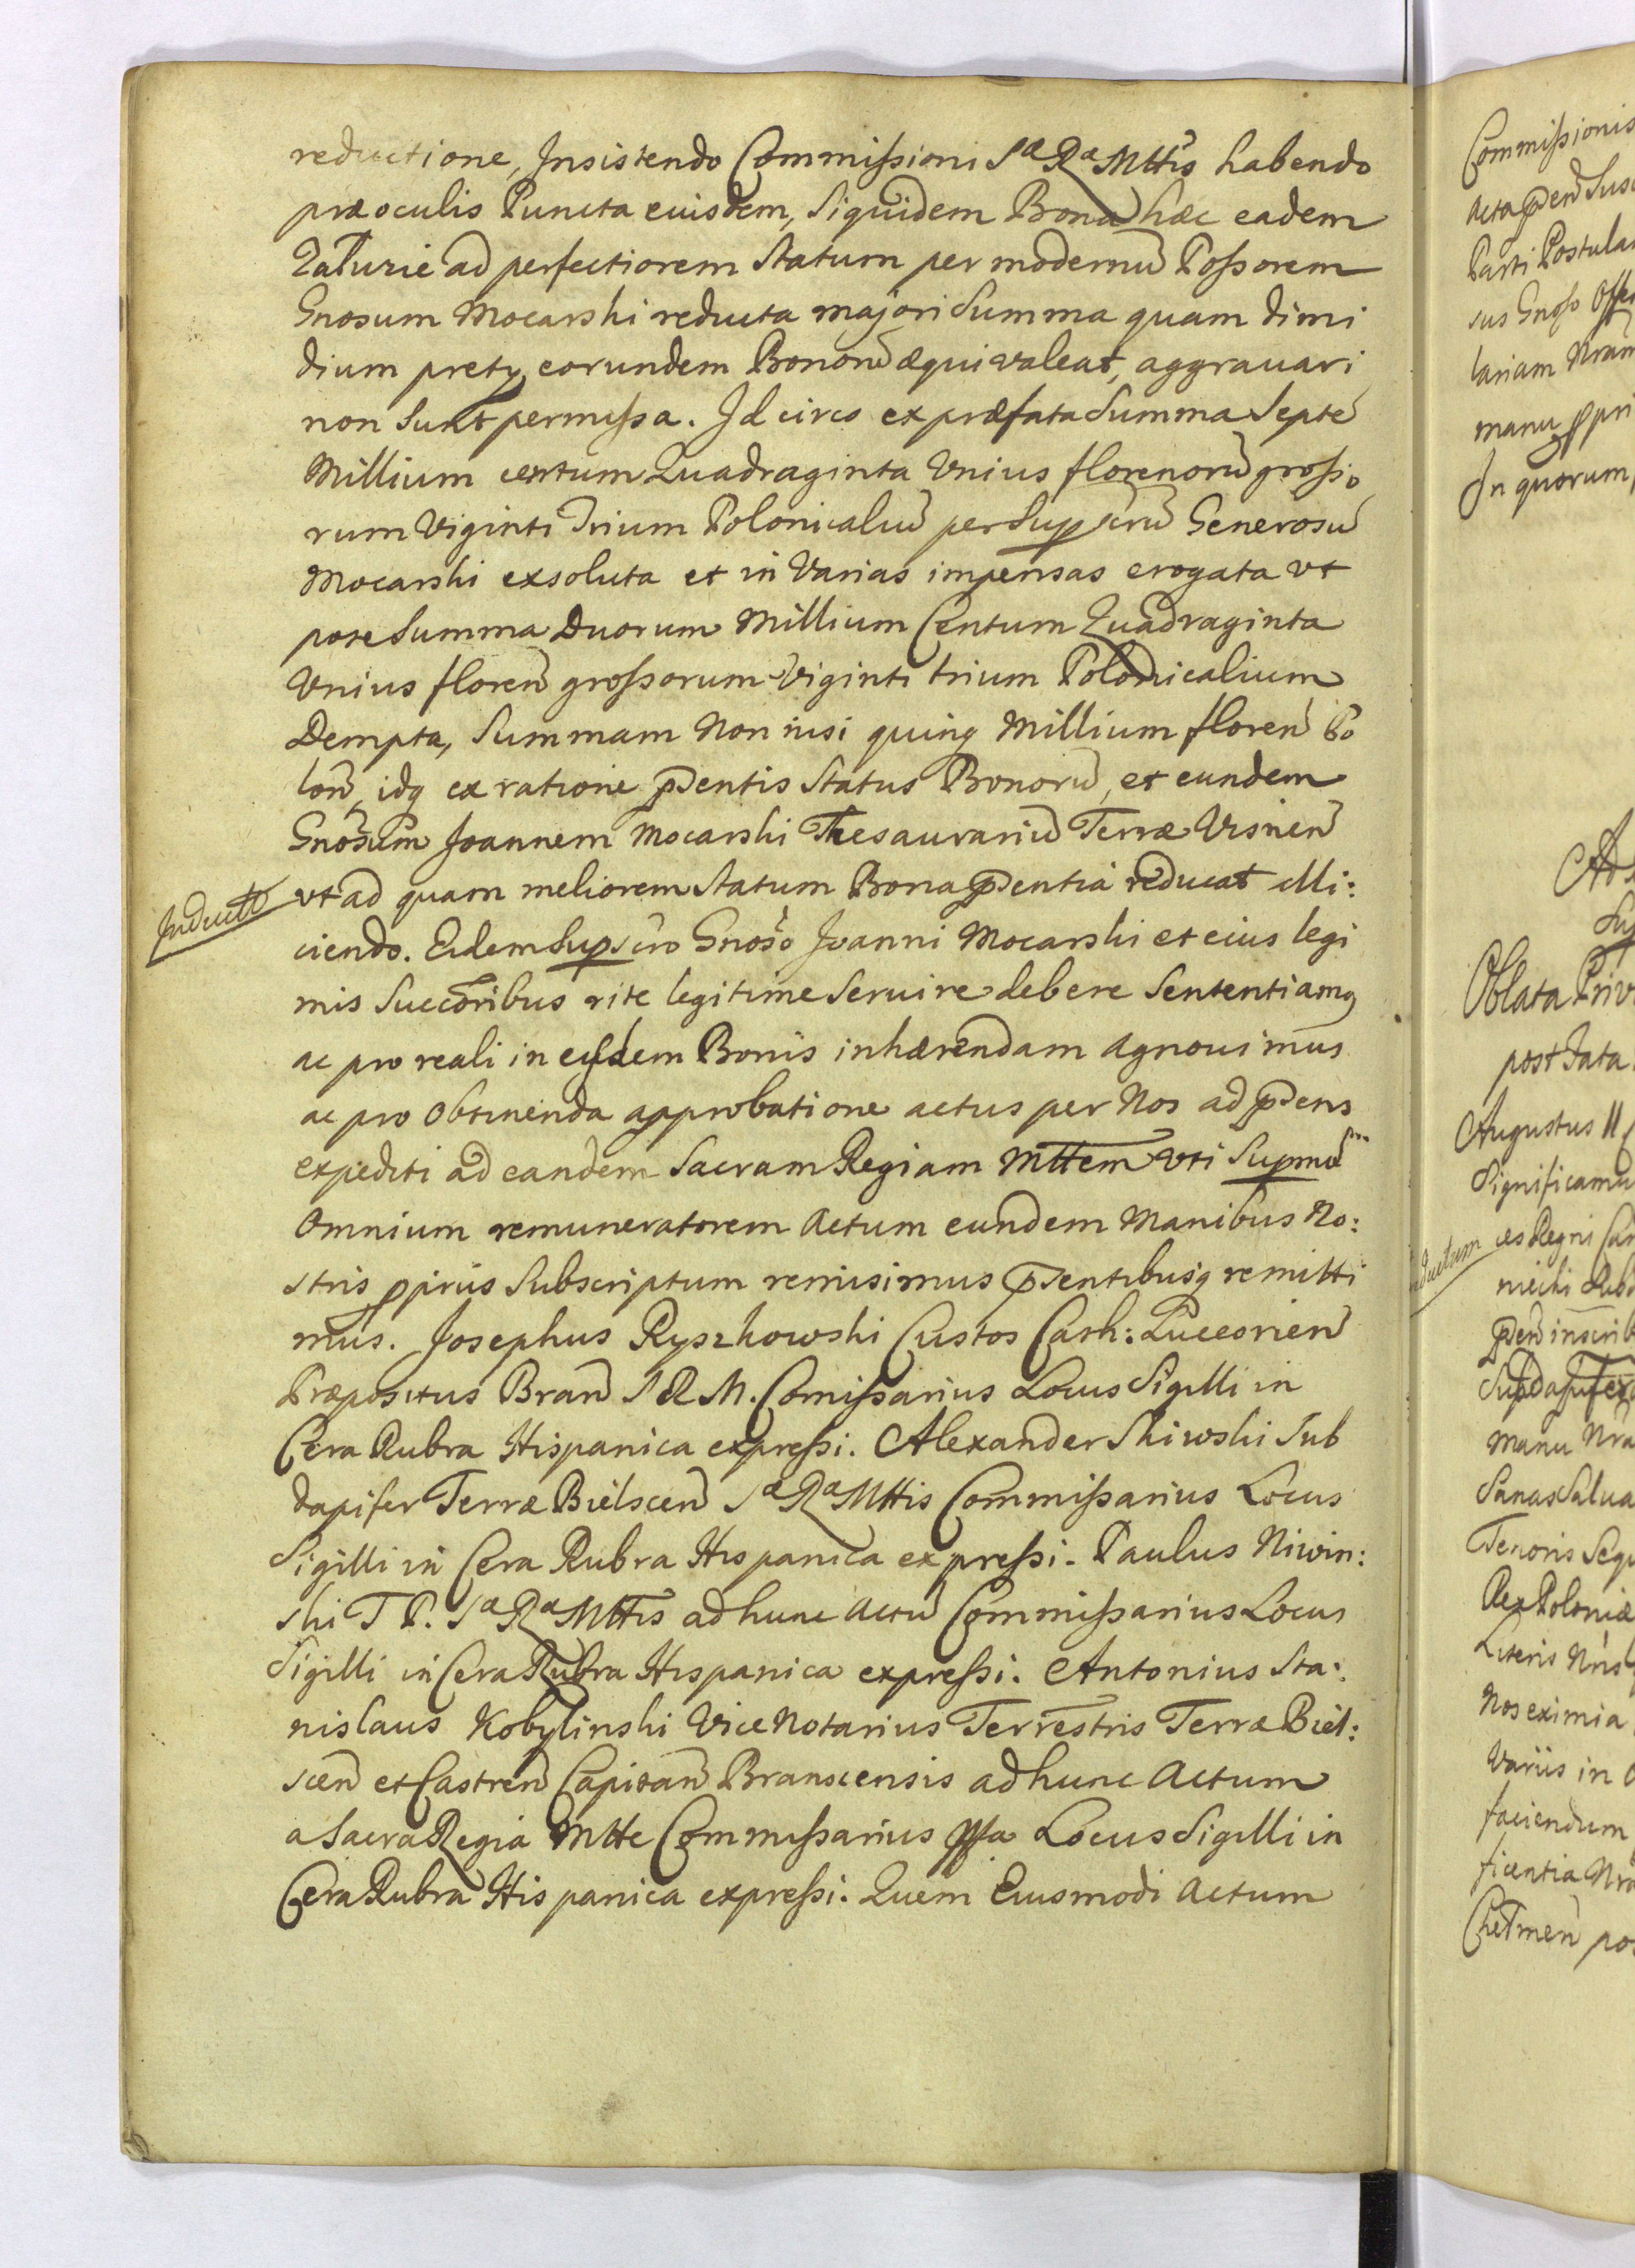 reductione, Insistendo Commissioni Sᵃ Rᵃ Mttis habendo
præ oculis Puncta eiusdem, siquidem Bona hæc eadem
Załuzie ad perfectiorem Statum per modernũ Possorem
Gnosum Mocarski reducta majori Summa quam dimi
dium prety eorundem Bonorũ æquivaleat, aggrauari
non sunt permissa. Id circo ex præfata Summa Septẽ
Millium centum Quadraginta Vnius florenorũ grosso
rum Viginti Trium Polonicaliũ per Supscrũ Generosũ
Mocarski exsoluta et in Varias impensas erogata vt
pote Summa Duorum Millium Centum Quadraginta
Vnius floreñ grossorum Viginti trium Polonicalium
Dempta, Summam Non nisi quinq Millium floreñ Po
loñ, idq ex ratione p̃entis Status Bonorũ, et eundem
Gnosum Joannem Mocarski Thesaurariũ Terræ Visneñ
vt ad quam meliorem Statum Bona p̃entia reducat elli:
ciendo. Eidem Supscro Gnoso Joanni Mocarski et eius legi
mis Succoribus rite legitime Seruire debere Sententiamq
ac pro reali in eysdem Bonis inhærendam agnouimus
ac pro Obtinenda approbatione actus per Nos ad p̃ens
expediti ad eandem Sacram Regiam Mttem Vti Supmũ
Omnium remuneratorem Actum eundem Manibus No:
stris ppriis Subscriptum remisimus p̃entibusq remitti
mus. Josephus Ryszkowski Custos Cath: Luceorieñ
Præpositus Brañ S R M. Comissarius Locus Sigilli in
Cera Rubra Hispanica expressi. Alexander Skiwski Sub
dapifer Terræ Bielsceñ Sᵃ Rᵃ Mttis Commissarius Locus
Sigilli in Cera Rubra Hispanica expressi. Paulus Niwin:
ski T P. Sᵃ Rᵃ Mttis ad hunc Actũ Commissarius Locus
Sigilli in Cera Rubra Hispanica expressi. Antonius Sta:
nislaus Kobylinski Vice Notarius Terrestris Terræ Biel:
sceñ et Castreñ Capitañ Branscensis ad hunc Actum
a Sacra Regia Mtte Commissarius Locus Sigilli in
Cera Rubra Hispanica expressi. Quem Eiusmodi Actum
Inducto
Commissionis
Acta p̃eñ Susc
Parti Postula
sus Gnoso Offe
lariam Nram
manu ppri
In quorum
Oblata Priv
post fata
Augustus II
Significamu
ces Regni
p̃eñ inscrib
manu Nra
Sanas Salua
Tenoris Sequ
Rex Poloniæ
Literis Nris
Nos eximia
Variis in
faciendum
ficentia Nra
Chełmeñ pos